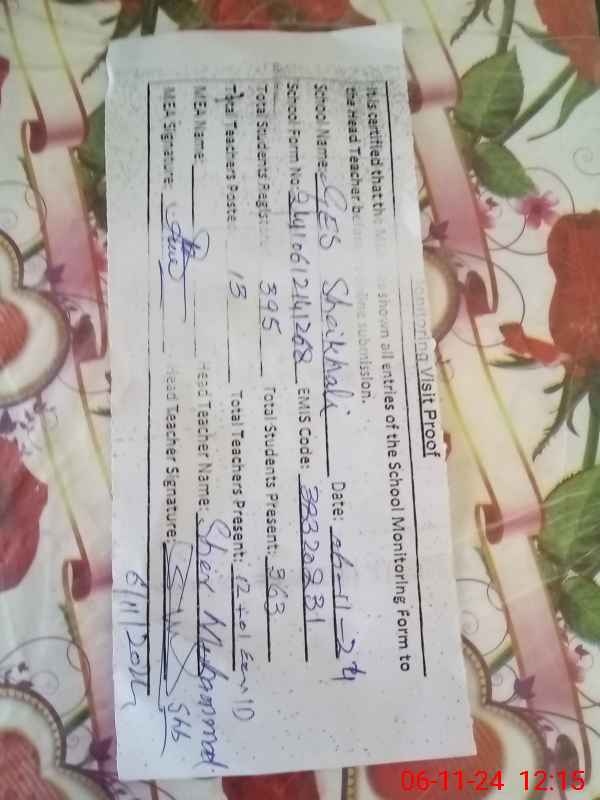 Monitoring Visit Proof
It is certified that the shown all entries of the School Monitoring Form to
the Head Teacher online submission.
School Name: GES Shaikhali Date: 06-11-24
School Form No: EMIS Code:
Total Students Registe 395 Total Students Present: 363
Total Teachers Poste 15 Total Teachers Present: 12+01
MEA Name: Head Teacher Name: Sher Muhammad
MEA Signature: Head Teacher Signature:
6/11/2024
06-11-24 12:15